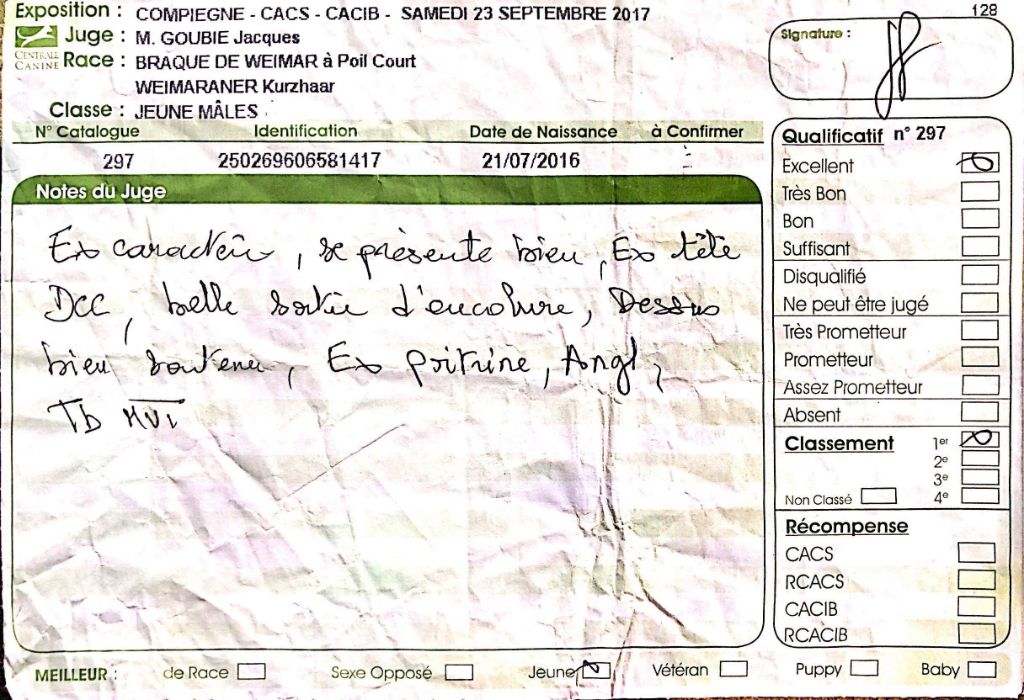 Exposition : COMPIEGNE - CACS - CACIB - SAMEDI 23 SEPTEMBRE 2017
128
CENTRALE CANINE
Juge : M. GOUBIE Jacques
Signature :
Race : BRAQUE DE WEIMAR à Poil Court
WEIMARANER Kurzhaar
Classe : JEUNE MÂLES
N° Catalogue Identification Date de Naissance à Confirmer
297 250269606581417 21/07/2016
Notes du Juge
Ex caractère, se présente bien, Ex tête
DCC, belle sortie d'encolure, Dessus
bien soutenu, Ex poitrine, Angl,
Tb MVT
Qualificatif n° 297
Excellent
Très Bon
Bon
Suffisant
Disqualifié
Ne peut être jugé
Très Prometteur
Prometteur
Assez Prometteur
Absent
Classement 1er
2e
3e
Non Classé 4e
Récompense
CACS
RCACS
CACIB
RCACIB
MEILLEUR : de Race Sexe Opposé Jeune Vétéran Puppy Baby